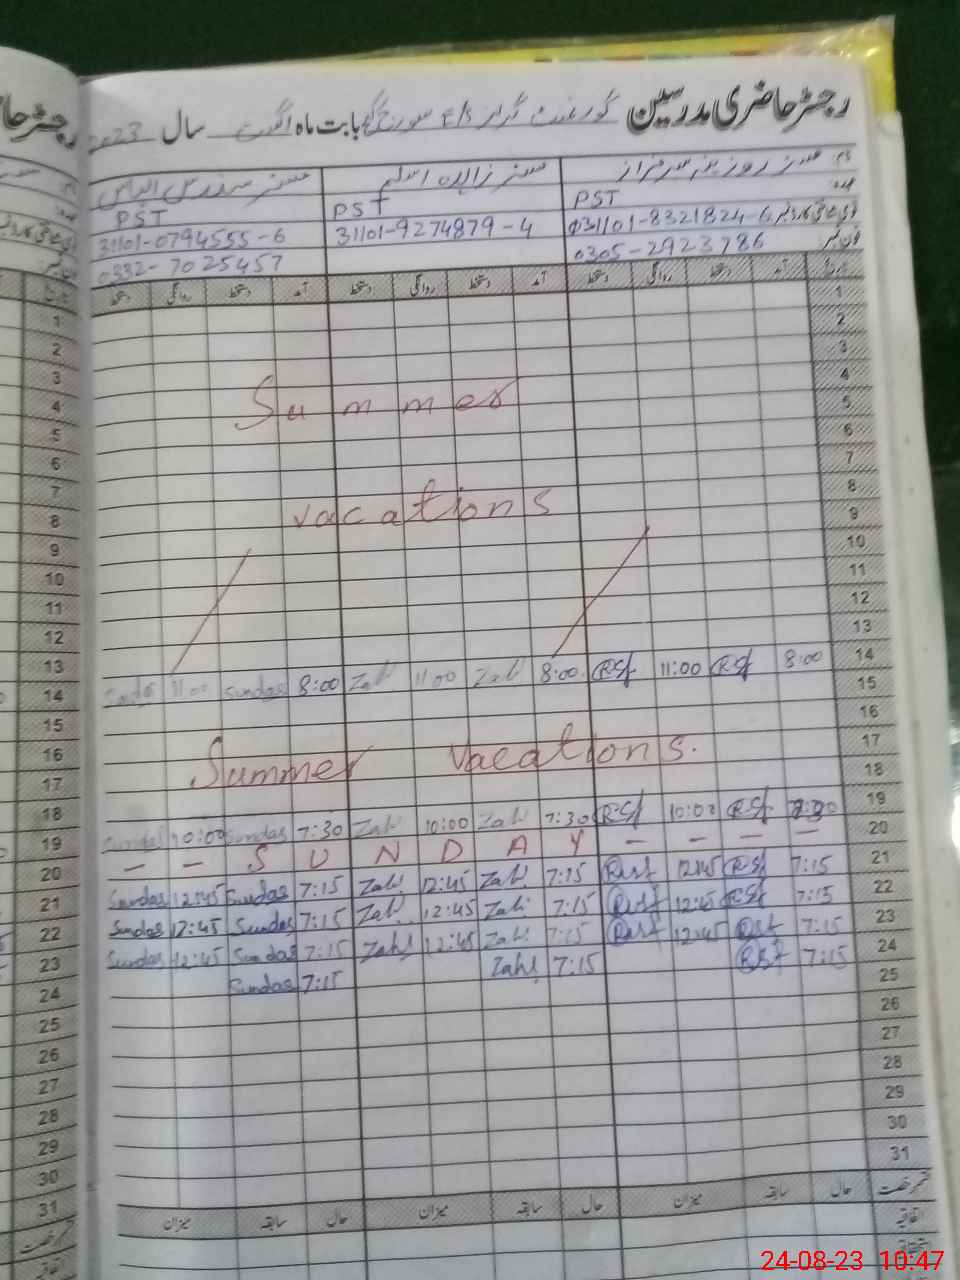 رجسٹر حاضری مدرسین گورنمنٹ گرلز E/S بابت ماہ اگست سال 2023
نام: مسز روزینہ سرفراز مسز زاہدہ اسلم مسز سندس الیاس
عہدہ PST PST PST
قومی شناختی کارڈ نمبر 31101-8321824-6 31101-9274879-4 31101-0794555-6
فون نمبر: 0305-2923786 0332-7025457
تاریخ آمد دستخط روانگی دستخط آمد دستخط روانگی دستخط آمد دستخط روانگی دستخط
1
2
3
4
Summer
5
6
7
8
vacations
9
10
11
12
13
14 8:00 11:00 8:00 Zah 11:00 Zah 8:00 Sundas 11:00 Sundas
15
16
17
Summer vacations.
18
19 7:30 10:00 7:30 Zah 10:00 Zah 7:30 Sundas 10:00 Sundas
20 — — — — S U N D A Y — —
21 7:15 12:45 7:15 Zah 12:45 Zah 7:15 Sundas 12:45 Sundas
22 7:15 12:45 7:15 Zah 12:45 Zah 7:15 Sundas 12:45 Sundas
23 7:15 12:45 7:15 Zah 12:45 Zah 7:15 Sundas 12:45 Sundas
24 7:15 7:15 Zah 7:15 Sundas
25
26
27
28
29
30
31
قسم رخصت حال سابقہ میزان حال سابقہ میزان حال سابقہ میزان
اتفاقیہ
24-08-23 10:47